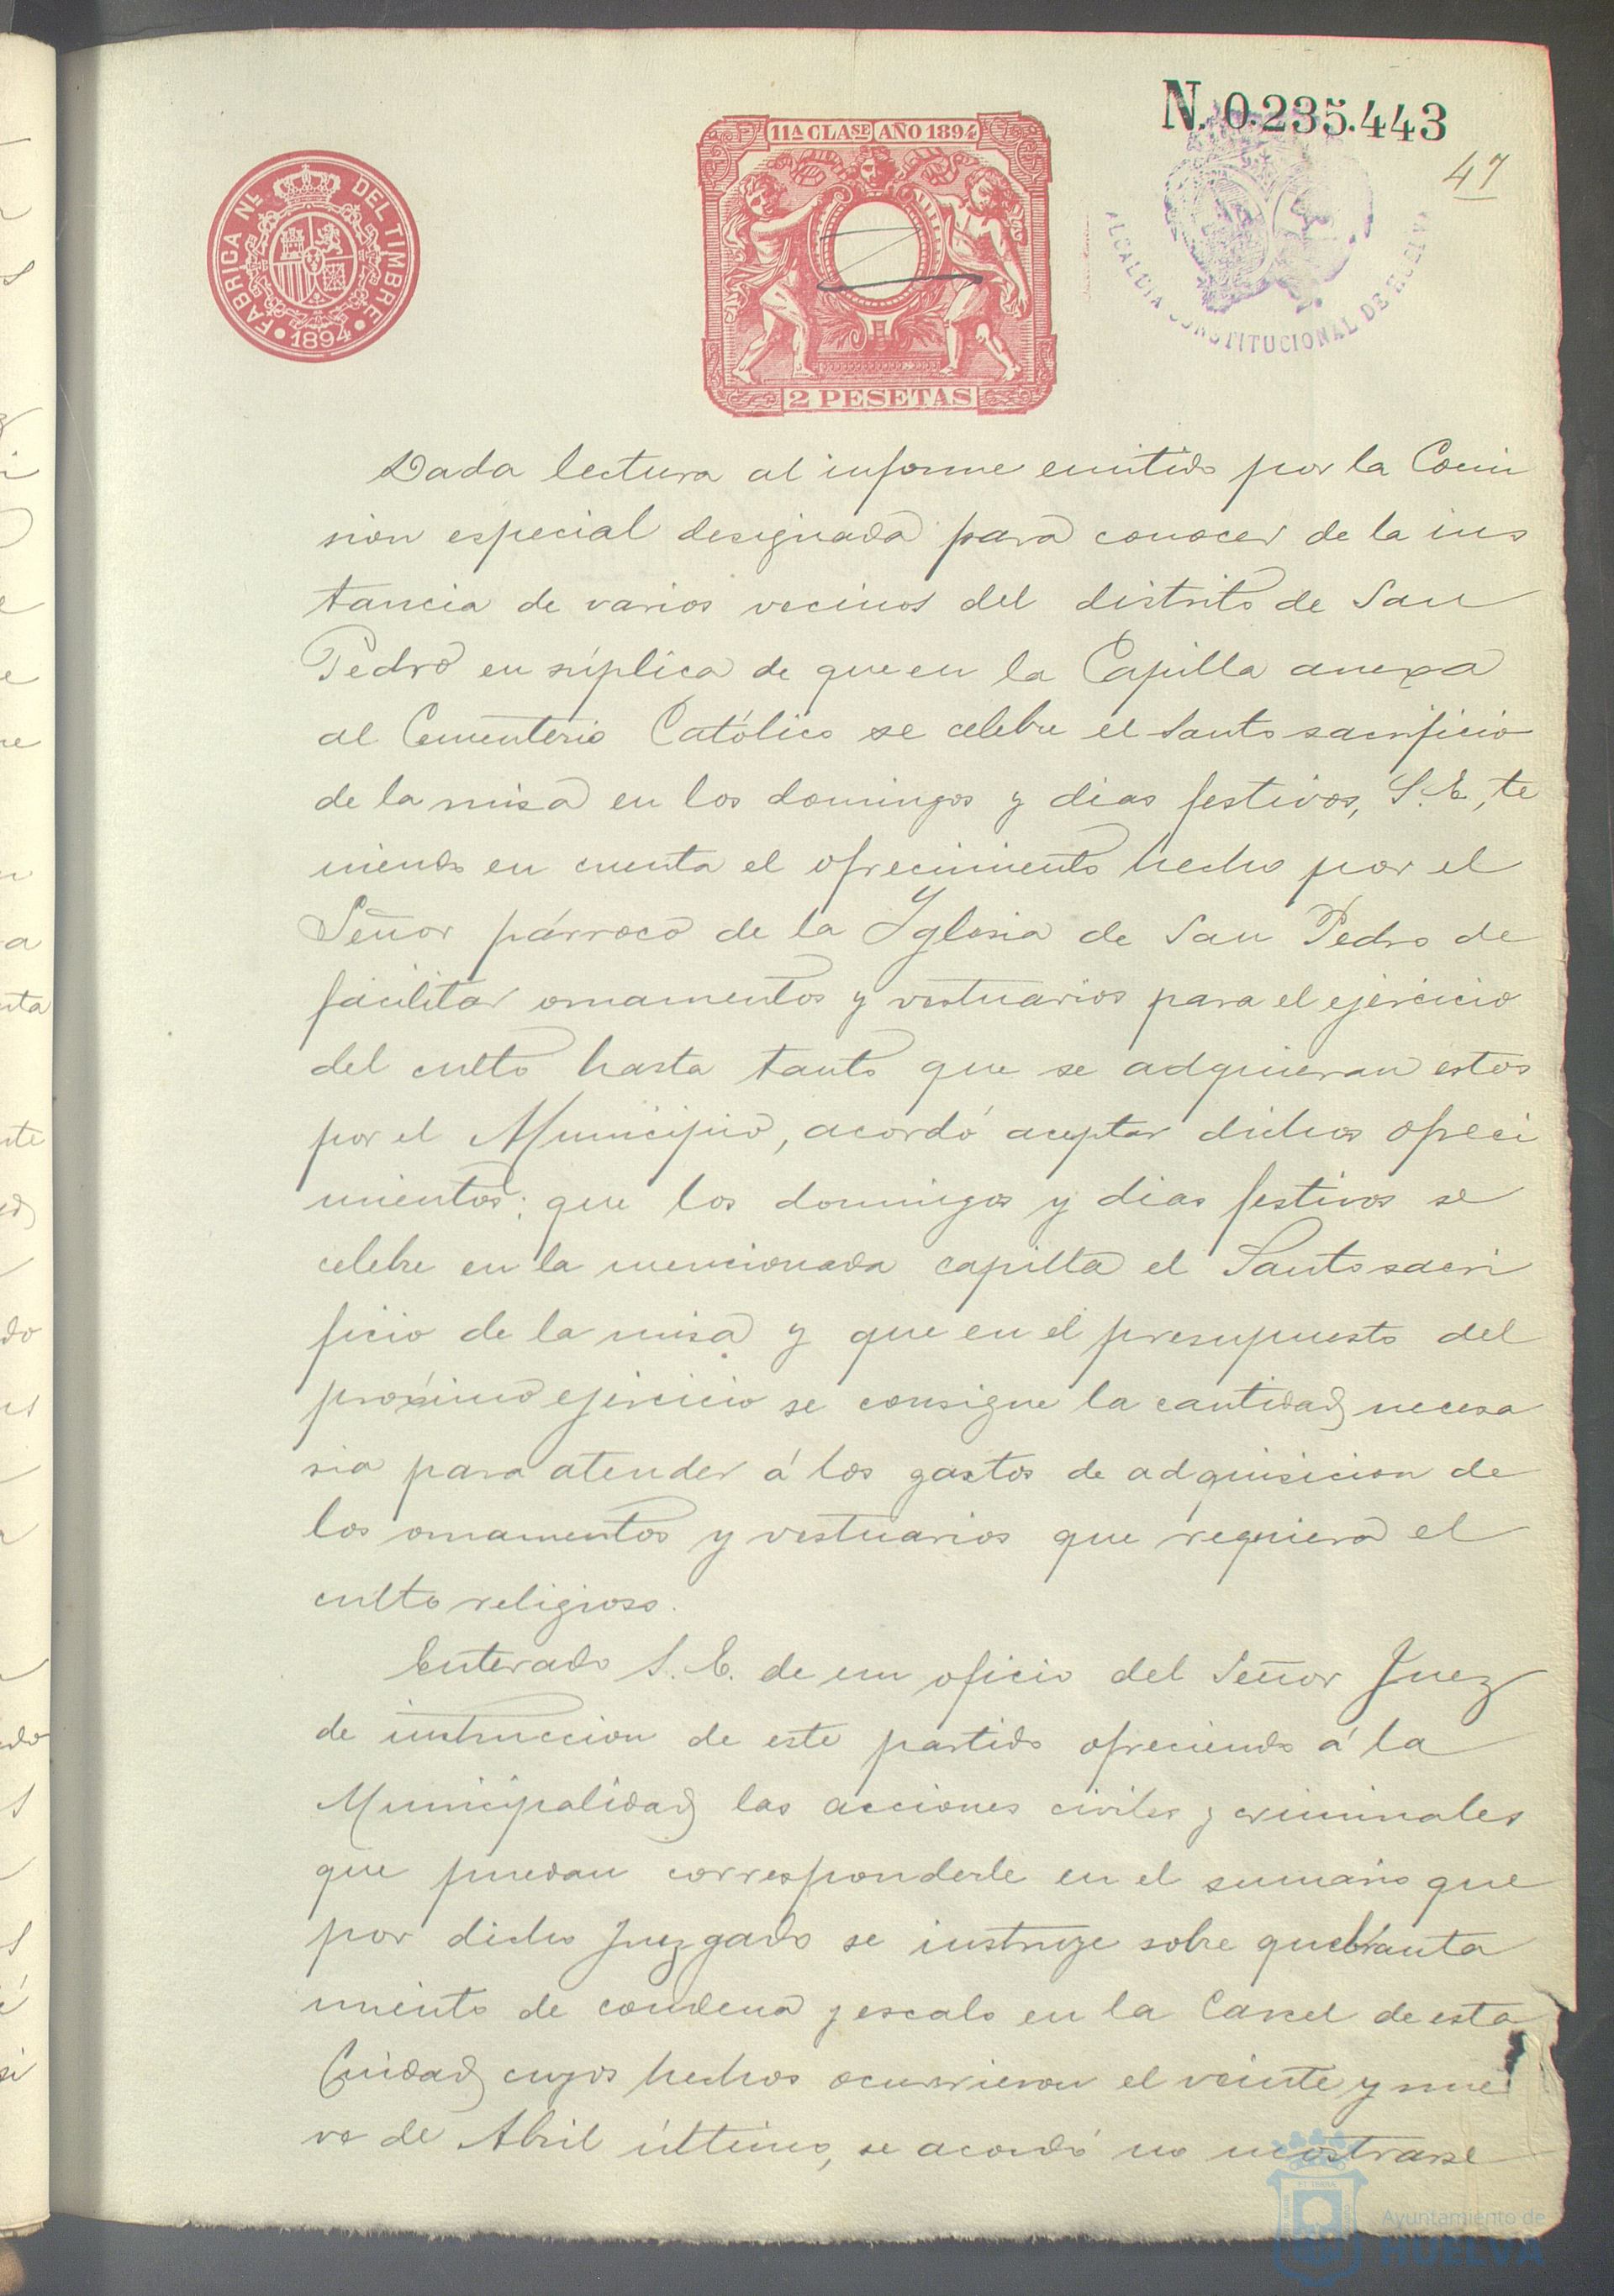 N. 0.235.443
47
11A CLASE AÑO 1894
FÁBRICA NL DEL TIMBRE
1894
ALCALDIA CONSTITUCIONAL DE HUELVA
2 PESETAS
Dada lectura al informe emitido por la Comi
sion especial designada para conocer de la ins
tancia de varios vecinos del distrito de San
Pedro en súplica de que en la Capilla anexa
al Cementerio Católico se celebre el Santo sacrificio
de la misa en los domingos y dias festivos, S. E., te
niendo en cuenta el ofrecimiento hecho por el
Señor párroco de la Yglesia de San Pedro de
facilitar ornamentos y vestuarios para el ejercicio
del culto hasta tanto que se adquieran estos
por el Municipio, acordó aceptar dichos ofreci
mientos; que los domingos y dias festivos se
celebre en la mencionada capilla el Santo sacri
ficio de la misa y que en el presupuesto del
próximo ejercicio se consigne la cantidad necesa
ria para atender á los gastos de adquisicion de
los ornamentos y vestuarios que requiera el
culto religioso.
Enterado S. E. de un oficio del Señor Juez
de instruccion de este partido ofreciendo á la
Municipalidad las acciones civiles y criminales
que puedan corresponderle en el sumario que
por dicho Juzgado se instruye sobre quebranta
miento de condena y escalo en la Carcel de esta
Ciudad cuyos hechos ocurrieron el veinte y nue
ve de Abril último, se acordó no mostrarse
Ayuntamiento de
HUELVA